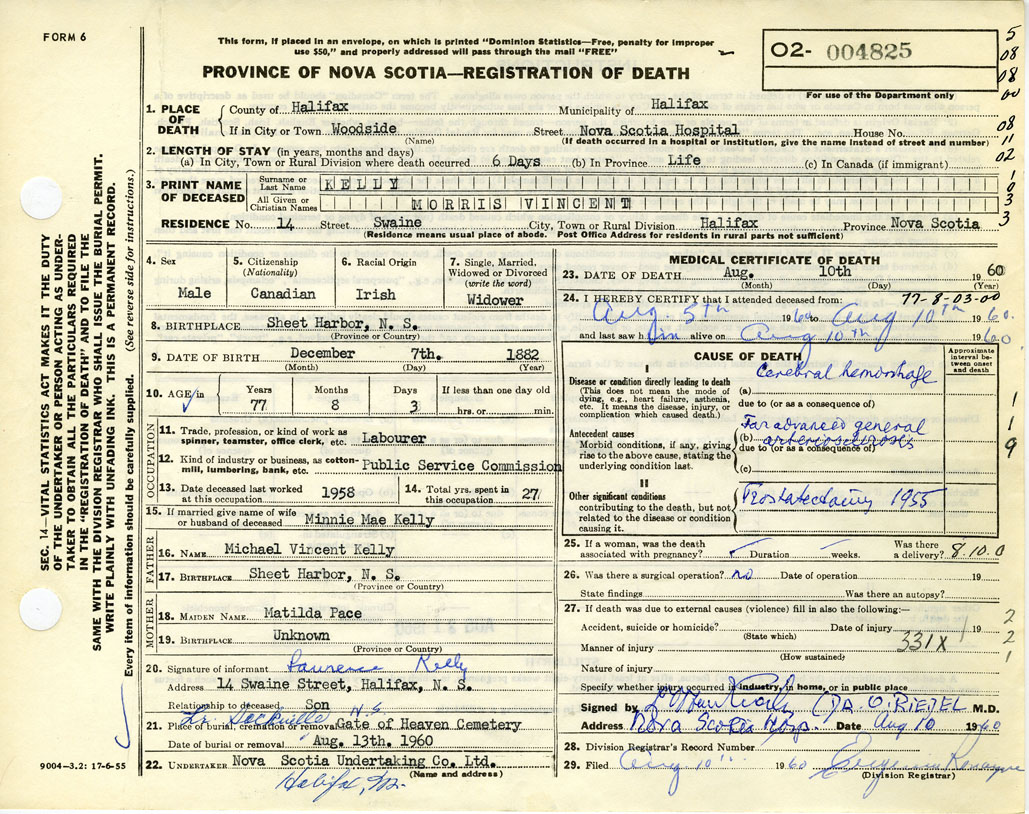 FORM 6
This form, if placed in an envelope, on which is printed "Dominion Statistics—Free, penalty for improper
use $50," and properly addressed will pass through the mail "FREE"
O2- 004825
For use of the Department only
PROVINCE OF NOVA SCOTIA—REGISTRATION OF DEATH
5
08
08
00
08
11
02
1
0
3
3
1. PLACE OF DEATH
County of Halifax Municipality of Halifax
If in City or Town Woodside Street Nova Scotia Hospital House No.
(Name) (If death occurred in a hospital or institution, give the name instead of street and number)
2. LENGTH OF STAY (in years, months and days)
(a) In City, Town or Rural Division where death occurred 6 Days (b) In Province Life (c) In Canada (if immigrant)
3. PRINT NAME OF DECEASED
Surname or Last Name KELLY
All Given or Christian Names MORRIS VINCENT
RESIDENCE No. 14 Street Swaine City, Town or Rural Division Halifax Province Nova Scotia
(Residence means usual place of abode. Post Office Address for residents in rural parts not sufficient)
4. Sex
Male
5. Citizenship (Nationality)
Canadian
6. Racial Origin
Irish
7. Single, Married, Widowed or Divorced (write the word)
Widower
8. BIRTHPLACE Sheet Harbor, N. S.
(Province or Country)
9. DATE OF BIRTH December 7th. 1882
(Month) (Day) (Year)
10. AGE in
Years Months Days If less than one day old
77 8 3 hrs. or min.
OCCUPATION
11. Trade, profession, or kind of work as
spinner, teamster, office clerk, etc. Labourer
12. Kind of industry or business, as cotton-
mill, lumbering, bank, etc. Public Service Commission
13. Date deceased last worked
at this occupation 1958
14. Total yrs. spent in
this occupation 27
15. If married give name of wife
or husband of deceased Minnie Mae Kelly
FATHER
16. NAME Michael Vincent Kelly
17. BIRTHPLACE Sheet Harbor, N. S.
(Province or Country)
MOTHER
18. MAIDEN NAME Matilda Pace
19. BIRTHPLACE Unknown
(Province or Country)
20. Signature of informant Lawrence Kelly
Address 14 Swaine Street, Halifax, N. S.
Relationship to deceased Son
Lr. Sackville N.S
21. Place of burial, cremation or removal Gate of Heaven Cemetery
Date of burial or removal Aug. 13th. 1960
22. UNDERTAKER Nova Scotia Undertaking Co. Ltd.
(Name and address)
Halifax, N.S.
9004—3.2: 17-6-55
MEDICAL CERTIFICATE OF DEATH
23. DATE OF DEATH Aug. 10th 1960
(Month) (Day) (Year)
77-8-03-00
24. I HEREBY CERTIFY that I attended deceased from:
Aug. 5th 1960 to Aug 10th 1960.
and last saw him alive on Aug 10th 1960
CAUSE OF DEATH
Approximate interval between onset and death
I
Disease or condition directly leading to death
(This does not mean the mode of
dying, e.g., heart failure, asthenia,
etc. It means the disease, injury, or
complication which caused death.)
Cerebral hemorrhage
(a)
due to (or as a consequence of)
Antecedent causes
Morbid conditions, if any, giving
rise to the above cause, stating the
underlying condition last.
Far advanced general
(b) arteriosclerosis
due to (or as a consequence of)
(c)
1
1
9
II
Other significant conditions
contributing to the death, but not
related to the disease or condition
causing it.
Prostatectomy 1955
25. If a woman, was the death
associated with pregnancy? Duration weeks. Was there
a delivery? 8.10.0
26. Was there a surgical operation? no Date of operation 19
State findings Was there an autopsy?
27. If death was due to external causes (violence) fill in also the following:—
Accident, suicide or homicide? Date of injury 19
(State which)
Manner of injury 331X
(How sustained)
Nature of injury
2
2
1
Specify whether injury occurred in industry, in home, or in public place
Signed by (DR. O. RIEDEL M.D.
Address Nova Scotia Hosp. Date Aug 10 1960
28. Division Registrar's Record Number
29. Filed Aug 10th 1960
(Division Registrar)
SEC. 14—VITAL STATISTICS ACT MAKES IT THE DUTY
OF THE UNDERTAKER OR PERSON ACTING AS UNDER-
TAKER TO OBTAIN ALL THE PARTICULARS REQUIRED
IN THE "REGISTRATION OF DEATH" AND TO FILE THE
SAME WITH THE DIVISION REGISTRAR WHO SHALL ISSUE THE BURIAL PERMIT.
WRITE PLAINLY WITH UNFADING INK. THIS IS A PERMANENT RECORD.
Every item of information should be carefully supplied. (See reverse side for instructions.)